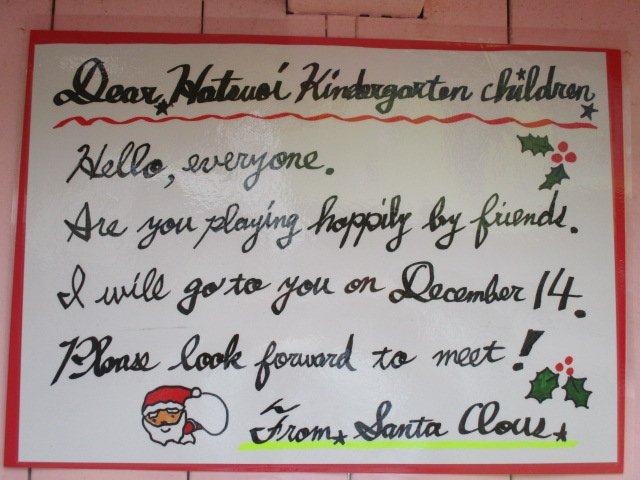 Dear, Hatsuoi Kindergarten children
Hello, everyone.
Are you playing happily by friends.
I will go to you on December 14.
Please look forward to meet!
From, Santa Claus.